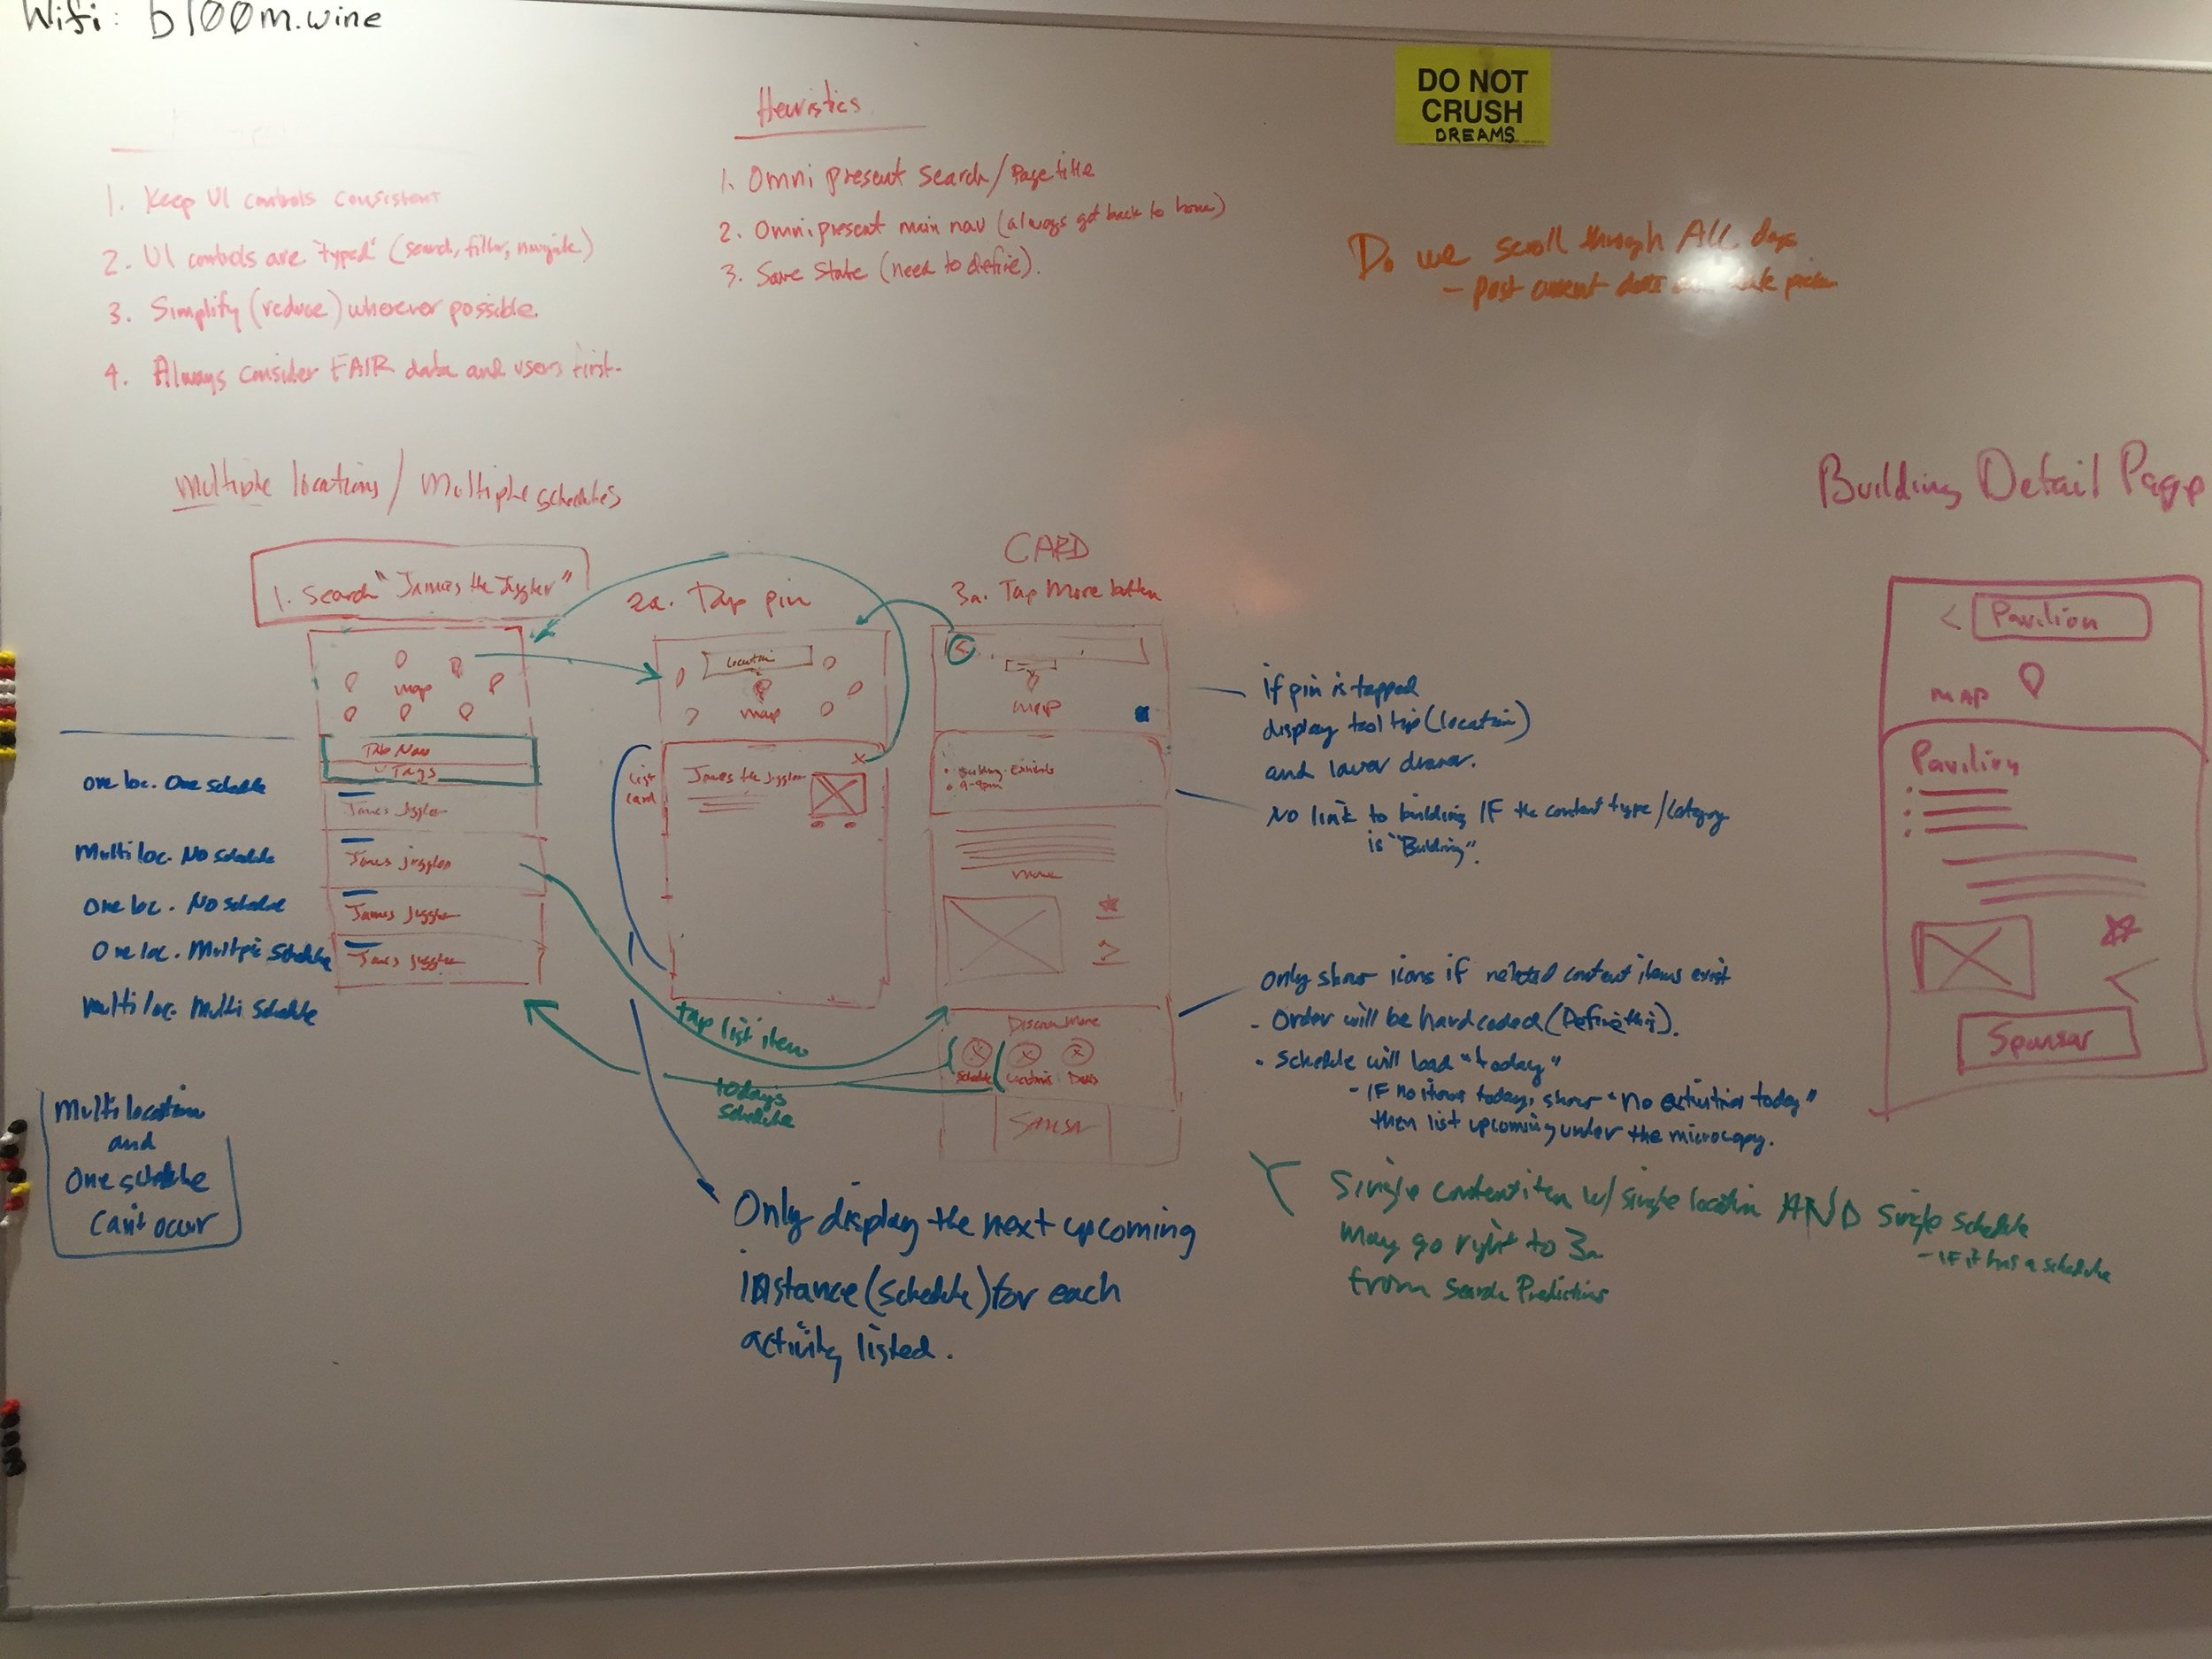 Wifi: b100m.wine
DO NOT
CRUSH
DREAMS
1. Keep UI controls consistent
2. UI controls are "typed" (search, filter, navigate)
3. Simplify (reduce) wherever possible.
4. Always consider FAIR data and users first.
Heuristics
1. Omni present search / Page title
2. Omnipresent main nav (always get back to home)
3. Save State (need to define).
Do we scroll through ALL days
- Past current date date picker
Multiple locations / Multiple schedules
1. Search "James the Juggler"
map
Tab Nav
Tags
James Juggler
James juggler
James Juggler
James juggler
one loc. One schedule
Multi loc. No schedule
One loc. No schedule
One loc. Multple Schedule
Multi loc. Multi Schedule
Multi location
and
One schedule
Can't occur
2a. Tap pin
Location
map
List
card
James the Juggler
tap list item
todays
schedule
CARD
3a. Tap More button
<
map
• Building: Exhibits
• 9-9pm
more
Discover More
Schedule
Deals
Sponsor
if pin is tapped
display tool tip (location)
and lower drawer.
No link to building IF the content type/category
is "Building".
Only show icons if related content items exist
- Order will be hardcoded (Define this).
• Schedule will load "today"
- IF no items today, show "No activities today"
then list upcoming under the microcopy.
Single content item w/ single location AND single schedule
- IF it has a schedule
may go right to 3a
from Search Predictions
Only display the next upcoming
instance (schedule) for each
activity listed.
Building Detail Page
< Pavilion
MAP
Pavilion
Sponsor